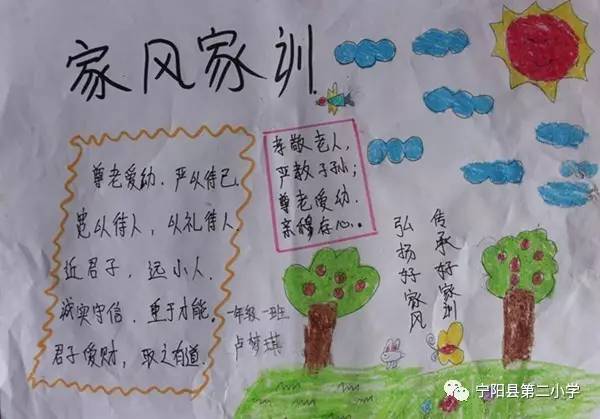 家风家训
尊老爱幼．严以待己．
宽以待人，以礼待人．
近君子，远小人．
诚实守信．重于才能．
君子爱财，取之有道．
孝敬老人，
严教子孙；
尊老爱幼．
亲穆存心。
一年级一班
卢梦琪
传承好家训
弘扬好家风
宁阳县第二小学